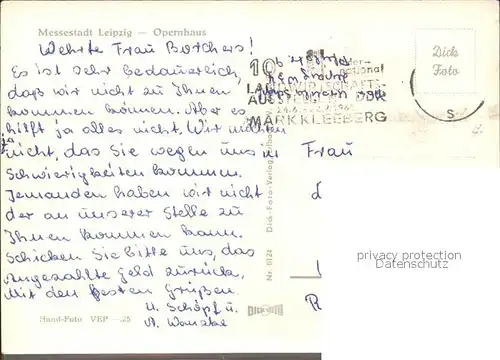 Messestadt Leipzig — Opernhaus
Werte Frau Borchers!
Es ist sehr bedauerlich,
daß wir nicht zu Ihnen
kommen können. Aber es
hilft ja alles nicht. Wir möchten
ja nicht, das Sie wegen uns in
Schwierigkeiten kommen.
Jemanden haben wir nicht
der an unserer Stelle zu
Ihnen kommen kann.
Schicken Sie bitte uns, das
angezahlte Geld zurück.
Mit den besten Grüßen
U. Schöpf u.
Hand-Foto VEP —.25
10
LANDWIRTSCHAFTS-
AUSSTELLUNG DER DDR
MARKKLEEBERG
Dick
Foto
S
Frau
Dick-Foto-Verlag
Nr. 6124
DICK FOTO
privacy protection
Datenschutz